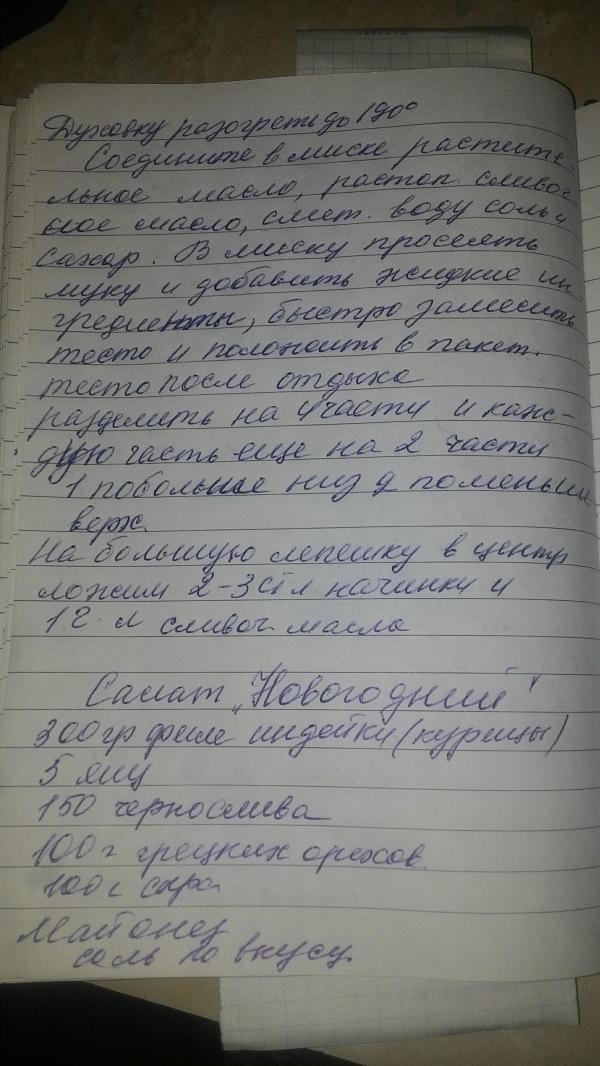 Духовку разогреть до 190°
Соедините в миске растите-
льное масло, растоп. сливоч-
ное масло, смет. воду соль и
сахар. В миску просеять
муку и добавить жидкие ин-
гредиенты, быстро замесить
тесто и положить в пакет.
тесто после отдыха
разделить на 4 части и каж-
дую часть еще на 2 части
1 побольше низ 2 поменьше
верх
На большую лепешку в центр
ложим 2-3 ст л начинки и
1 г. л сливоч масла
Салат „Новогодний"
300 гр филе индейки (курицы)
5 яиц
150 чернослива
100 г грецких орехов
100 г сыра
Майонез
соль по вкусу.